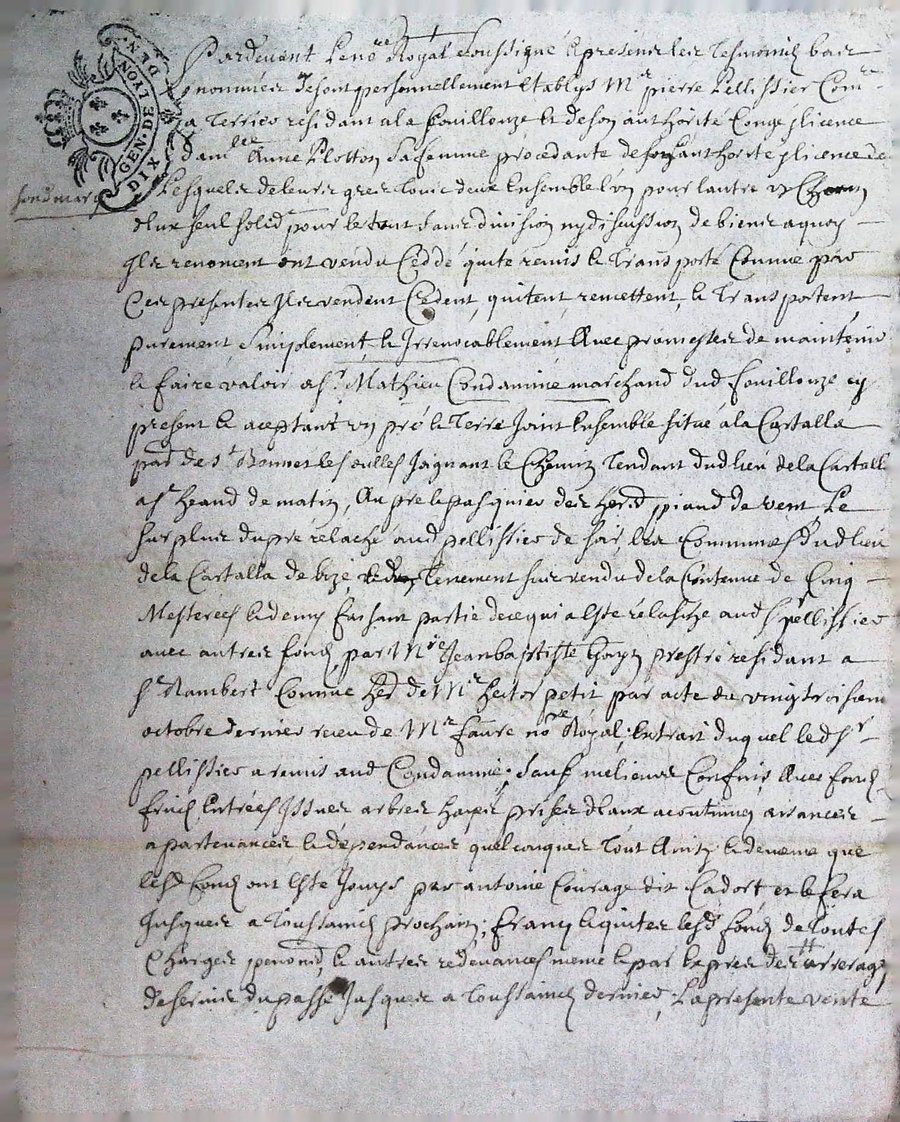 GEN. DE LYON
DIX DEN.
Pardevant Le no.re Royal Soussigné & presens les tesmoings bas
nommés, se sont personnellement Establys M.r pierre Pellissier Com.re
a Terrier residant a la fouillouze & de son authorité Conge & licence
dam.lle Anne Plotton sa femme procedante de son authorité & licence
Lesquels de leurs gres tous deux Ensemble l'un pour l'autre
d'Eux seul solid.t pour le tout sans division ny discussion de biens a quoy
Ils renoncent ont vendu Ceddé quité remis & Transporté Comme par
Ces presentes Ils vendent Cedent, quitent, remettent, & Transportent
purement, Simplement, & Irrevocablement Avec promesses de maintenir
& faire valoir a S.r Mathieu Condamine marchand dud. fouillouze cy
present & aceptant un pré & Terre Joint Ensemble situé a la Castalla
par.e de S.t Bonnet les oulles Jaignant le Chemin Tendant dud lieu de la Castall
a S.t heand de matin, Au pre & pasquier des piaud de vent Le
surplus du pre relaché aud pellissier de soir, Les Communes dud lieu
de la Castalla de bize, Tenement sus vendu de la Contenue de Cinq
Mesterées & demy faisant partie de ce qui a Esté relasché aud S.r pellissier
avec autres fonds par M.re Jean baptiste prestre residant a
S.t Rambert Comme her. de M.re hector petit par acte du vingt troisiem
octobre dernier receu de M.e faure no.re Royal, Extrait duquel led S.r
pellissier a remis aud Condamine, sauf melieurs Confins Avec fonds
fruicts Entrées Issues arbres hayes prises d'Eaux acoutumées aisances
apartenances & dependances quelconques Tout Ainsy & de meme que
lesd. fonds ont Esté Jouys par antoine Courage dit Cadort et le sera
Jusques a Toussaincts prochain; francs & quites lesd. fonds de Toutes
Charges & autres redevances meme & par Expres des arrerages
de servis du passé Jusques a Toussaincts dernier, La presente vente